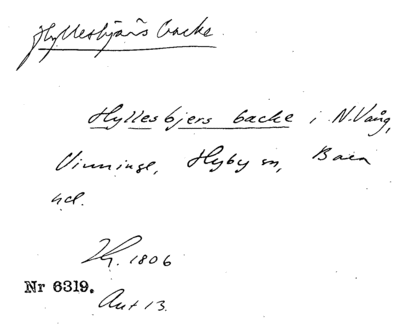 Hyllesbjärs backe.
Hyllesbjers backe i N. Vång,
Vinninge, Hyby sn, Bara
hd.
1806
Nr 6319.
Ant 13.